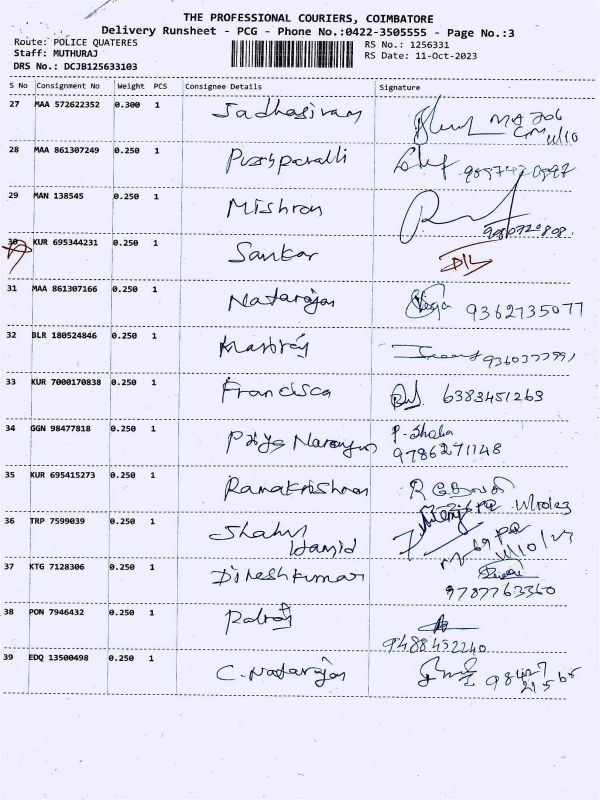 THE PROFESSIONAL COURIERS, COIMBATORE
Delivery Runsheet - PCG - Phone No.:0422-3505555 - Page No.:3
Route: POLICE QUATERES RS No.: 1256331
Staff: MUTHURAJ RS Date: 11-Oct-2023
DRS No.: DCJB125633103
S No Consignment No Weight PCS Consignee Details Signature
27 MAA 572622352 0.300 1 Sadhasivam
28 MAA 861307249 0.250 1 Pushpavalli
29 MAN 138545 0.250 1 Mishron
30 KUR 695344231 0.250 1 Sankar
31 MAA 861307166 0.250 1 Natarajan 9362735077
32 BLR 180524846 0.250 1
33 KUR 7000170838 0.250 1 Francisca 6383451263
34 GGN 98477818 0.250 1 Priya P. Shala
9786271148
35 KUR 695415273 0.250 1 Ramakrishnan
11/10/23
36 TRP 7599039 0.250 1 Shahul
Hamid 11/10/23
37 KTG 7128306 0.250 1 Dineshkumar
9787763360
38 PON 7946432 0.250 1 Palraj
9488452240
39 EDQ 13500498 0.250 1 C. Natarajan